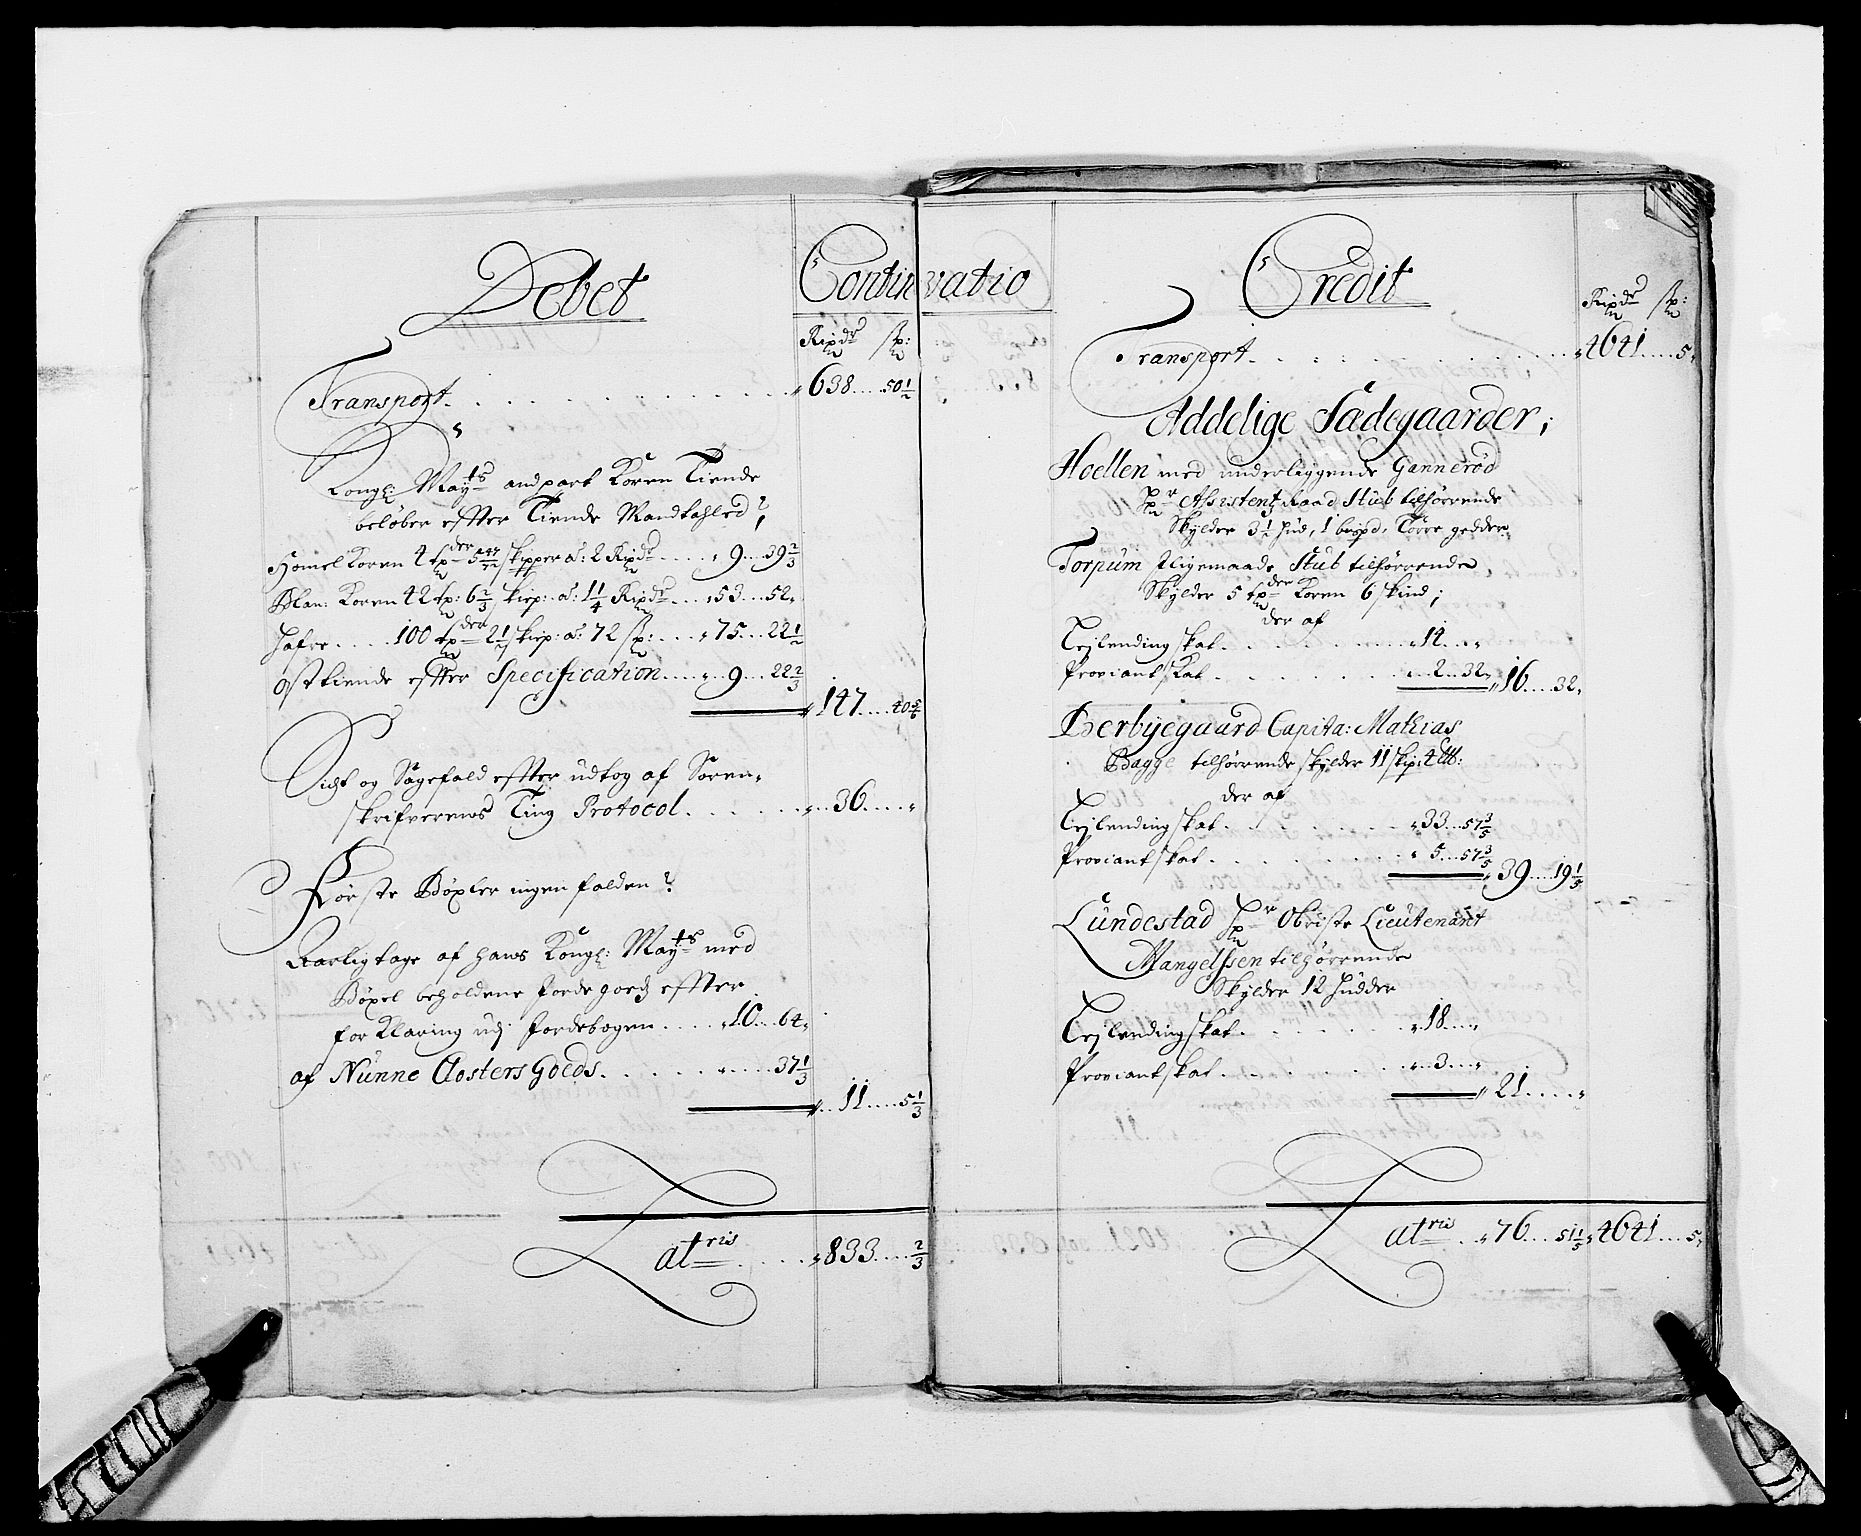 Debet
Continvatio
Rixdr sk:
Transport. . . . . . . . . . . . . 638....50½
Kongl: Mayts andpart Koren Tiende
beløber effter Tiende Mandtahled,
Homel Koren 4 tder 5 skipper a: 2 Rixdr ..... 9...39⅔
Blan: Koren 42 t: 6⅔ skip: a: 1¼ Rixdr ... 53...52
Hafre.....100 tder 2½ skip: a: 72 sk: .... 75...22½
ostetiende effter Specification ..... 9...22⅔
147....40⅚
Sict og Sagefald effter udtog af Soren-
skrifverens Ting Protocol. . . . . . 36....
Første Bøxler ingen falden
Aarligtage af hans Kongl: Mayts med
Bøxel beholdene Jordegoedz effter
for Klaring udj Jordebogen ..... 10...64
af Nunne Closters Goeds. . . . . . 37⅓
11....5⅓
atris . . . . . 833....⅔
Credit
Rixdr sk:
Transport. . . . . . . . . . . . 4641....5
Addelige Sædegaarder;
Hoellen med underliggende Gannerød
Hr Assistentz Raad Stub tilhørrende
Skylder 3½ hud, 1 bixpd. Tørre gedder
Torpum Lligemaade Stub tilhørrende,
Skylder 5 tder Koren 6 skind;
der af
Lejlending skat. . . . . . . . 14....
Proviant skat . . . . . . . . 2...32
16....32
Berbyegaard Capita: Mathias
Bagge tilhørrende skylder 11 skip: 4
der af
Lejlending skat. . . . . . . . 33...57⅗
Proviant skat . . . . . . . . 5...57⅗
39....19⅕
Lundestad Hr Obriste Lieutenant
Mangelssen tilhørrende
Skylder 12 hudder
Lejlending skat. . . . . . . . 18....
Proviant skat . . . . . . . . 3....
21....
atris ... 76....51⅕ 4641....5